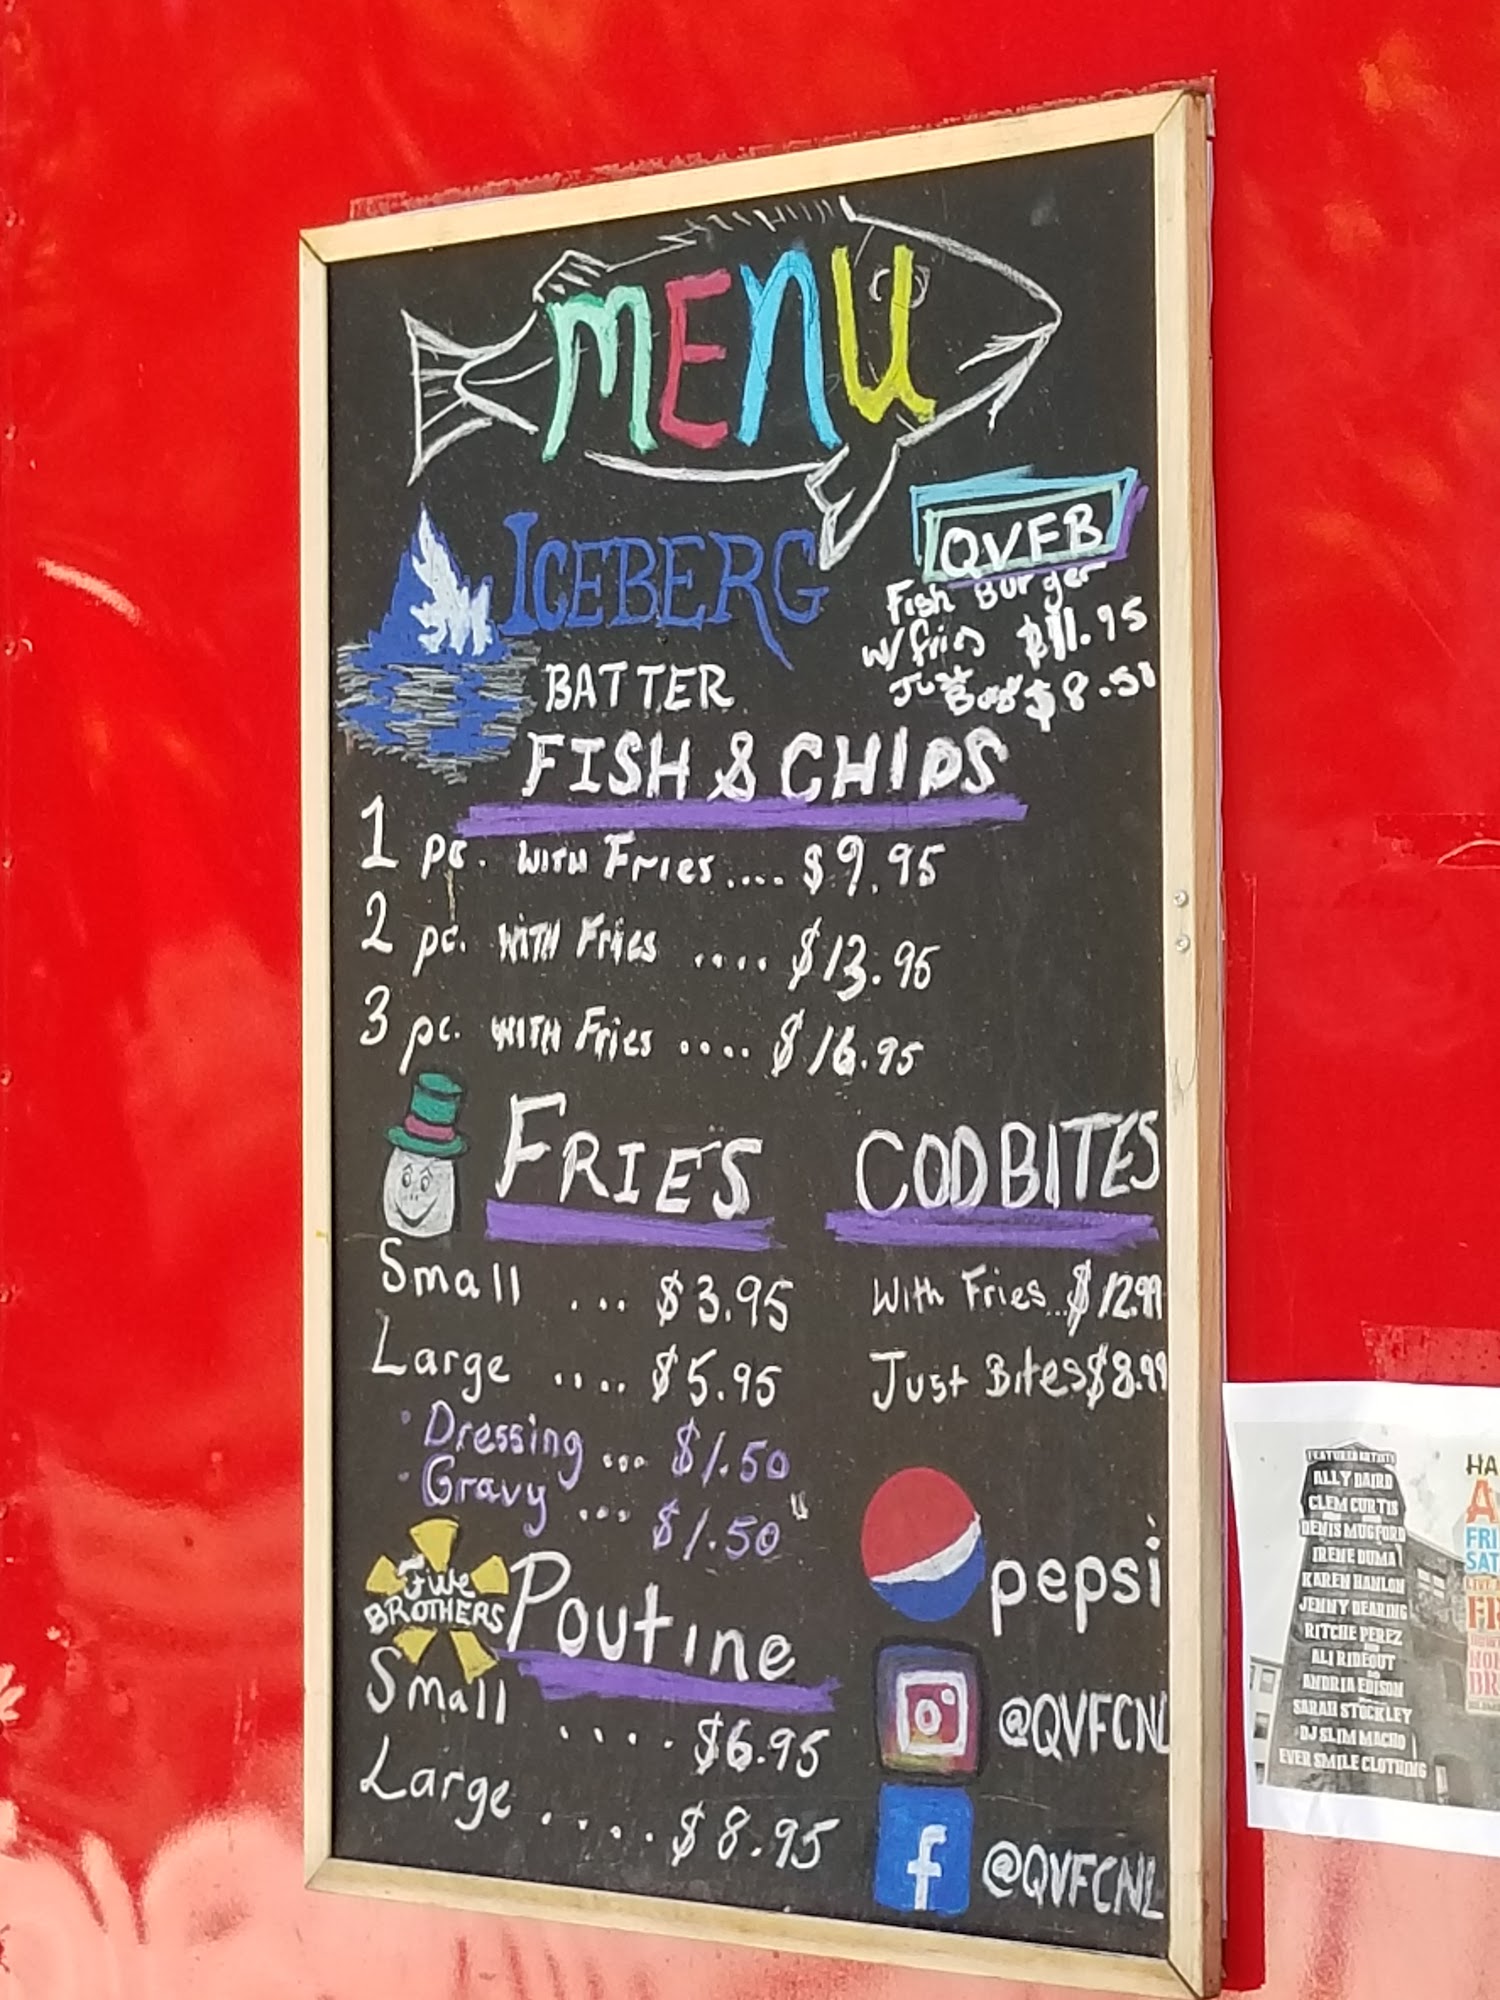 MENU
ICEBERG
BATTER
FISH & CHIPS
QVFB
Fish Burger
w/fries $11.95
Just $8.50
1 pc. WITH Fries.... $9.95
2 pc. WITH Fries .... $13.95
3 pc. WITH Fries .... $16.95
FRIES
Small ... $3.95
Large .... $5.95
Dressing ... $1.50
Gravy ... $1.50
CODBITES
With Fries... $12.99
Just Bites $8.99
BROTHERS
Poutine
Small .... $6.95
Large .... $8.95
pepsi
@QVFCNL
f @QVFCNL
FEATURED ARTISTS
ALLY BAIRD
CLEM CURTIS
DENIS MUGFORD
IRENE DUMA
KAREN HANLON
JENNY DEARING
RITCHE PEREZ
ALI RIDEOUT
ANDRIA EDISON
SARAH STOCKLEY
DJ SLIM MACHO
EVER SMILE CLOTHING
HA
A
FRI
SAT